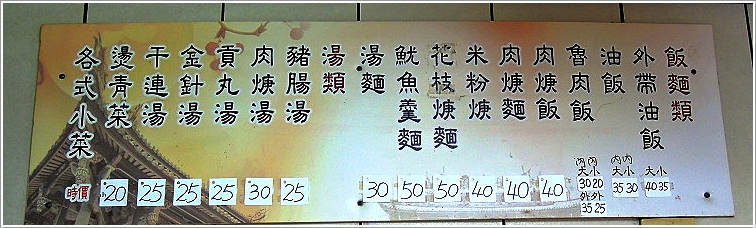 飯麵類
外帶油飯
大小
40 35
油飯
內內
大小
35 30
魯肉飯
內內
大小
30 20
外外
35 25
肉焿飯
40
肉焿麵
40
米粉焿
40
花枝焿麵
50
魷魚羹麵
50
湯麵
30
湯類
豬腸湯
25
肉焿湯
30
貢丸湯
25
金針湯
25
干連湯
25
燙青菜
20
各式小菜
時價